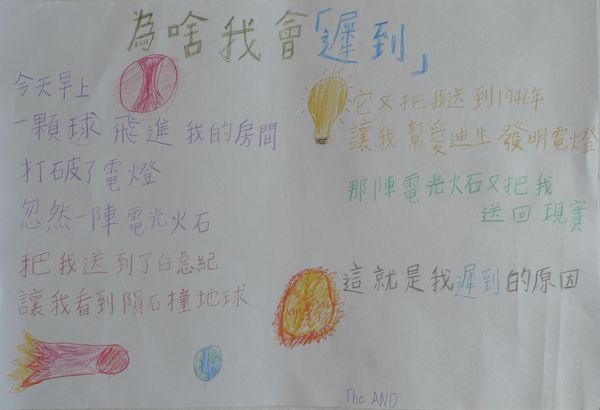 為啥我會「遲到」
今天早上
一顆球飛進我的房間
打破了電燈
忽然一陣電光火石
把我送到了白惡紀
讓我看到隕石撞地球
它又把我送到1946年
讓我幫愛迪生發明電燈
那陣電光火石又把我
送回現實
這就是我遲到的原因
The AND